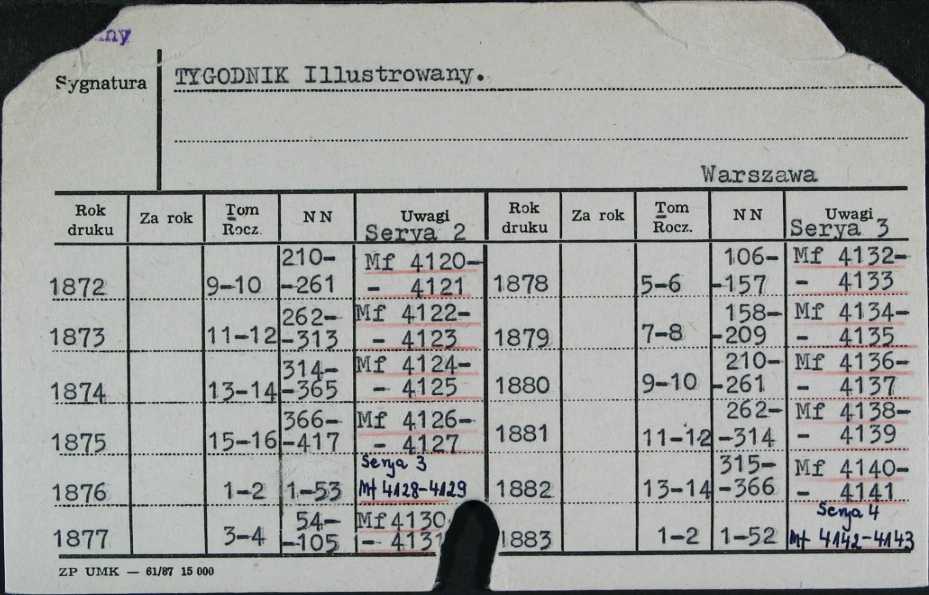 Sygnatura
TYGODNIK Illustrowany.
Warszawa
Rok druku Za rok Tom Rocz. NN Uwagi Serya 2 Rok druku Za rok Tom Rocz. NN Uwagi Serya 3
1872 9-10 210--261 Mf 4120-- 4121 1878 5-6 106--157 Mf 4132-- 4133
1873 11-12 262--313 Mf 4122-- 4123 1879 7-8 158--209 Mf 4134-- 4135
1874 13-14 314--365 Mf 4124-- 4125 1880 9-10 210--261 Mf 4136-- 4137
1875 15-16 366--417 Mf 4126-- 4127 1881 11-12 262--314 Mf 4138-- 4139
1876 1-2 1-53 Serya 3 Mf 4128-4129 1882 13-14 315--366 Mf 4140-- 4141
1877 3-4 54--105 Mf 4130 - 4131 1883 1-2 1-52 Serya 4 Mf 4142-4143
ZP UMK — 61/87 15 000